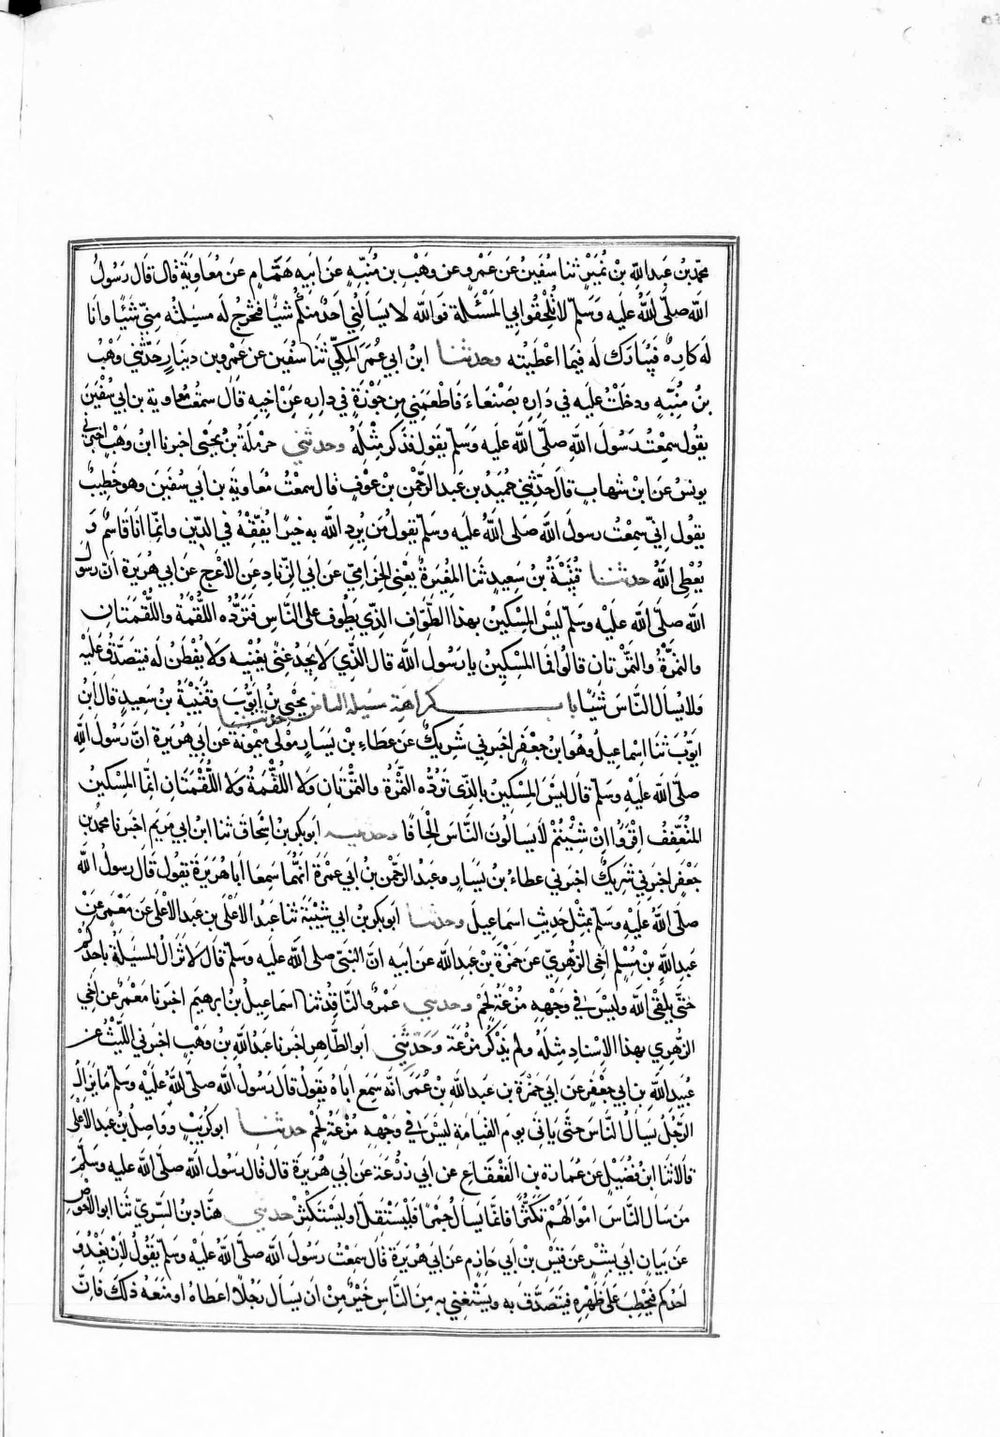 محمد بن عبد الله بن نمير ثنا سفين عن عمرو عن وهب بن منبه عن ابيه همام عن معاوية قال قال رسول
الله صلى الله عليه وسلم لا تلحفوا بي المسئلة فوالله لا يسألني احد منكم شيئا فتخرج له مسئلته مني شيئا وانا
له كاره فيبارك له فيما اعطيته وحدثنا ابن ابي عمر المكي ثنا سفين عن عمرو بن دينار حدثني وهب
بن منبه ودخلت عليه في داره بصنعاء فاطعمني من جوزة في داره عن اخيه قال سمعت معاوية بن ابي سفين
يقول سمعت رسول الله صلى الله عليه وسلم يقول فذكر مثله وحدثني حرملة بن يحيى اخبرنا ابن وهب اخبرني
يونس عن ابن شهاب قال حدثني حميد بن عبد الرحمن بن عوف قال سمعت معاوية بن ابي سفين وهو خطيب
يقول اني سمعت رسول الله صلى الله عليه وسلم يقول من يرد الله به خيرا يفقهه في الدين وانما انا قاسم و
يعطي الله حدثنا قتيبة بن سعيد ثنا المغيرة يعني الحزامي عن ابي الزناد عن الاعرج عن ابي هريرة ان رسول
الله صلى الله عليه وسلم ليس المسكين بهذا الطواف الذي يطوف على الناس فترده اللقمة واللقمتان
والتمرة والتمرتان قالوا فما المسكين يا رسول الله قال الذي لا يجد غنى يغنيه ولا يفطن له فيتصدق عليه
ولا يسأل الناس شيئا باب كراهة مسيلة الناس حدثنا يحيى بن ايوب وقتيبة بن سعيد قال ابن
ايوب ثنا اسماعيل وهو ابن جعفر اخبرني شريك عن عطاء بن يسار مولى ميمونة عن ابي هريرة ان رسول الله
صلى الله عليه وسلم قال ليس المسكين بالذي ترده التمرة والتمرتان ولا اللقمة ولا اللقمتان انما المسكين
المتعفف اقرؤا ان شئتم لا يسالون الناس الحافا وحدثنيه ابو بكر بن اسحاق ثنا ابن ابي مريم اخبرنا محمد بن
جعفر اخبرني شريك اخبرني عطاء بن يسار وعبد الرحمن بن ابي عمرة انهما سمعا ابا هريرة يقول قال رسول الله
صلى الله عليه وسلم بمثل حديث اسماعيل وحدثنا ابو بكر بن ابي شيبة ثنا عبد الاعلى بن عبد الاعلى عن معمر عن
عبد الله بن مسلم اخي الزهري عن حمزة بن عبد الله عن ابيه ان النبي صلى الله عليه وسلم قال لا تزال المسيلة باحدكم
حتى يلقى الله وليس في وجهه مزعة لحم وحدثني عمرو الناقد ثنا اسماعيل بن ابرهيم اخبرنا معمر عن اخي
الزهري بهذا الاسناد مثله ولم يذكر مزعة وحدثني ابو الطاهر اخبرنا عبد الله بن وهب اخبرني الليث عن
عبيد الله بن ابي جعفر عن ابي حمزة بن عبد الله بن عمر انه سمع اباه يقول قال رسول الله صلى الله عليه وسلم ما يزال
الرجل يسال الناس حتى ياتي يوم القيامة ليس في وجهه مزعة لحم حدثنا ابو كريب وواصل بن عبد الاعلى
قالا ثنا ابن فضيل عن عمارة بن القعقاع عن ابي زرعة عن ابي هريرة قال قال رسول الله صلى الله عليه وسلم
من سال الناس اموالهم تكثرا فانما يسال جمرا فليستقل او ليستكثر حدثني هناد بن السري ثنا ابو الاحوص
عن بيان ابي بشر عن قيس بن ابي حازم عن ابي هريرة قال سمعت رسول الله صلى الله عليه وسلم يقول لان يغدو
احدكم فيحطب على ظهره فيتصدق به ويستغني به من الناس خير من ان يسال رجلا اعطاه او منعه ذلك فان